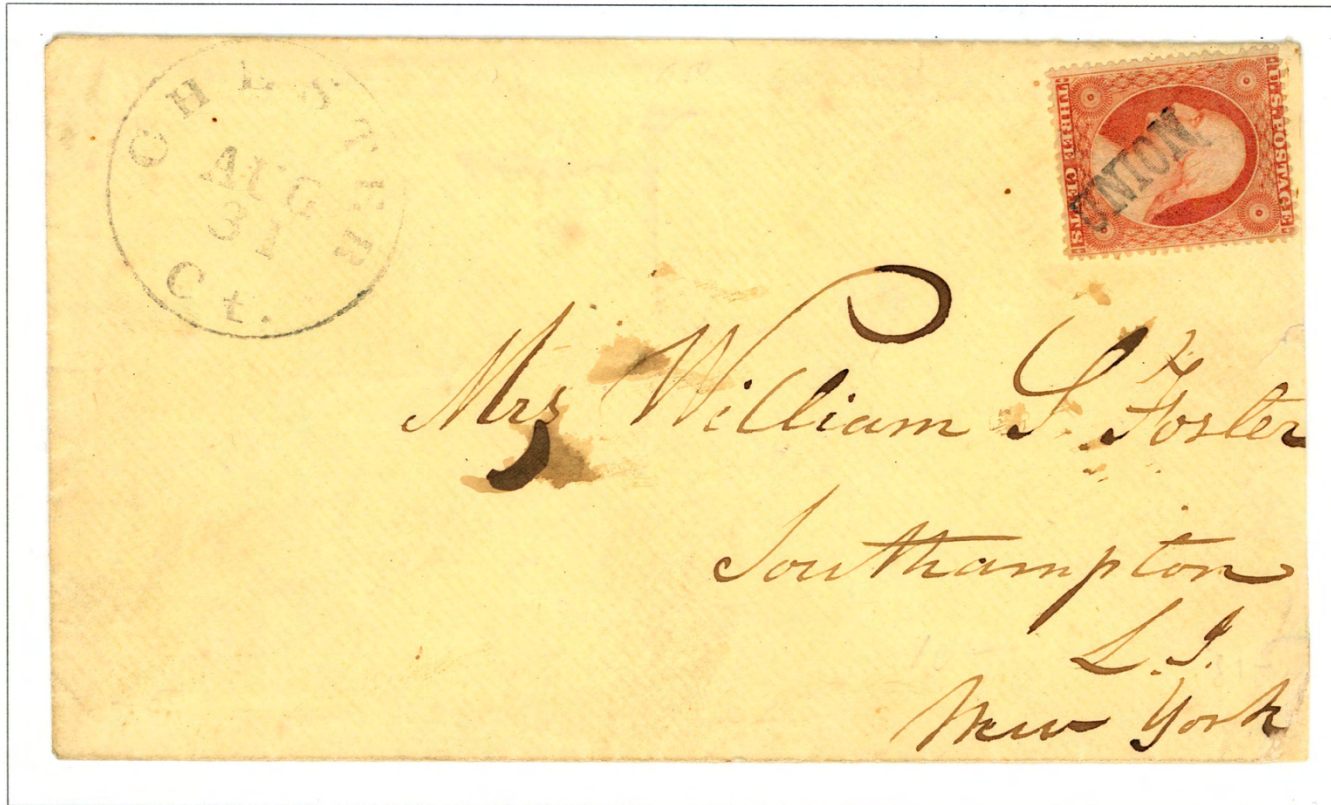 CHESTER
AUG
31
Ct.
U.S. POSTAGE
UNION
THREE CENTS
Mrs William S. Foster
Southampton
L.I.
New York